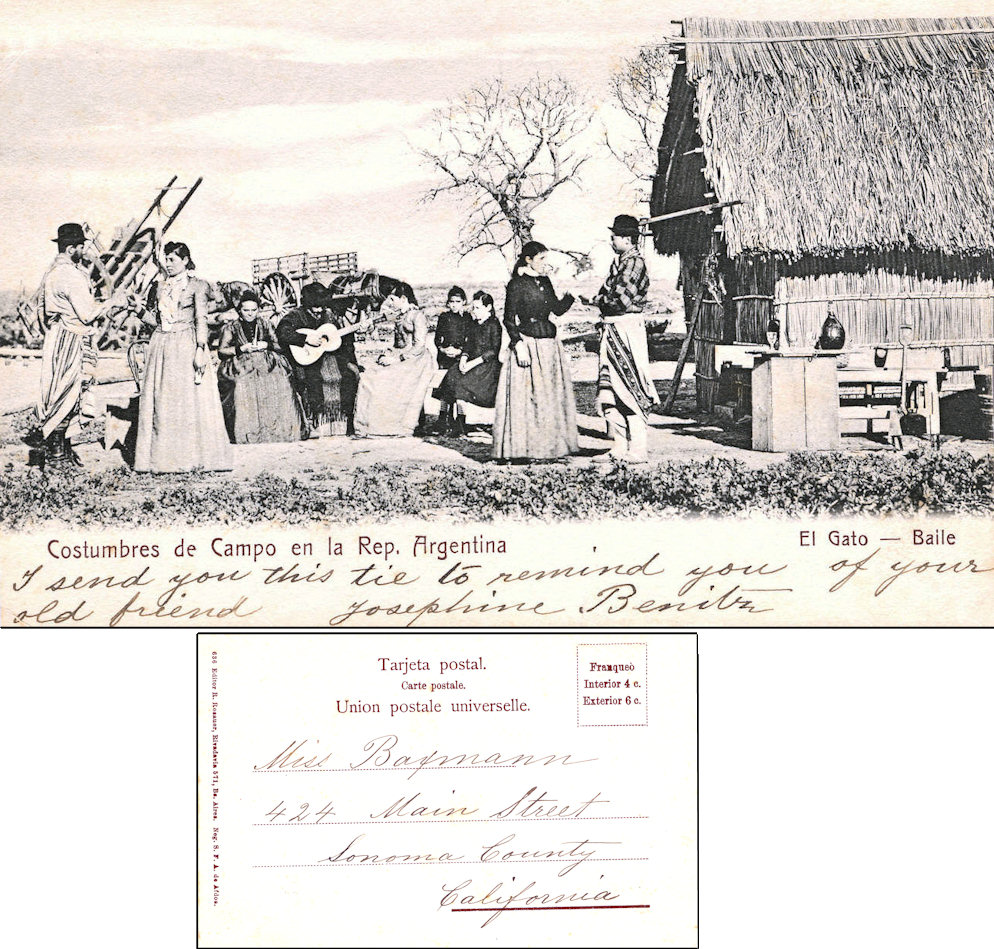 Costumbres de Campo en la Rep. Argentina
El Gato — Baile
I send you this tie to remind you of your
old friend Josephine Benitz
636 Editor R. Rosauer, Rivadavia 571, Bs. Aires. Neg. S. F. A. de Afdos.
Tarjeta postal.
Carte postale.
Union postale universelle.
Franqueò
Interior 4 c.
Exterior 6 c.
Miss Baxmann
424 Main Street
Sonoma County
California